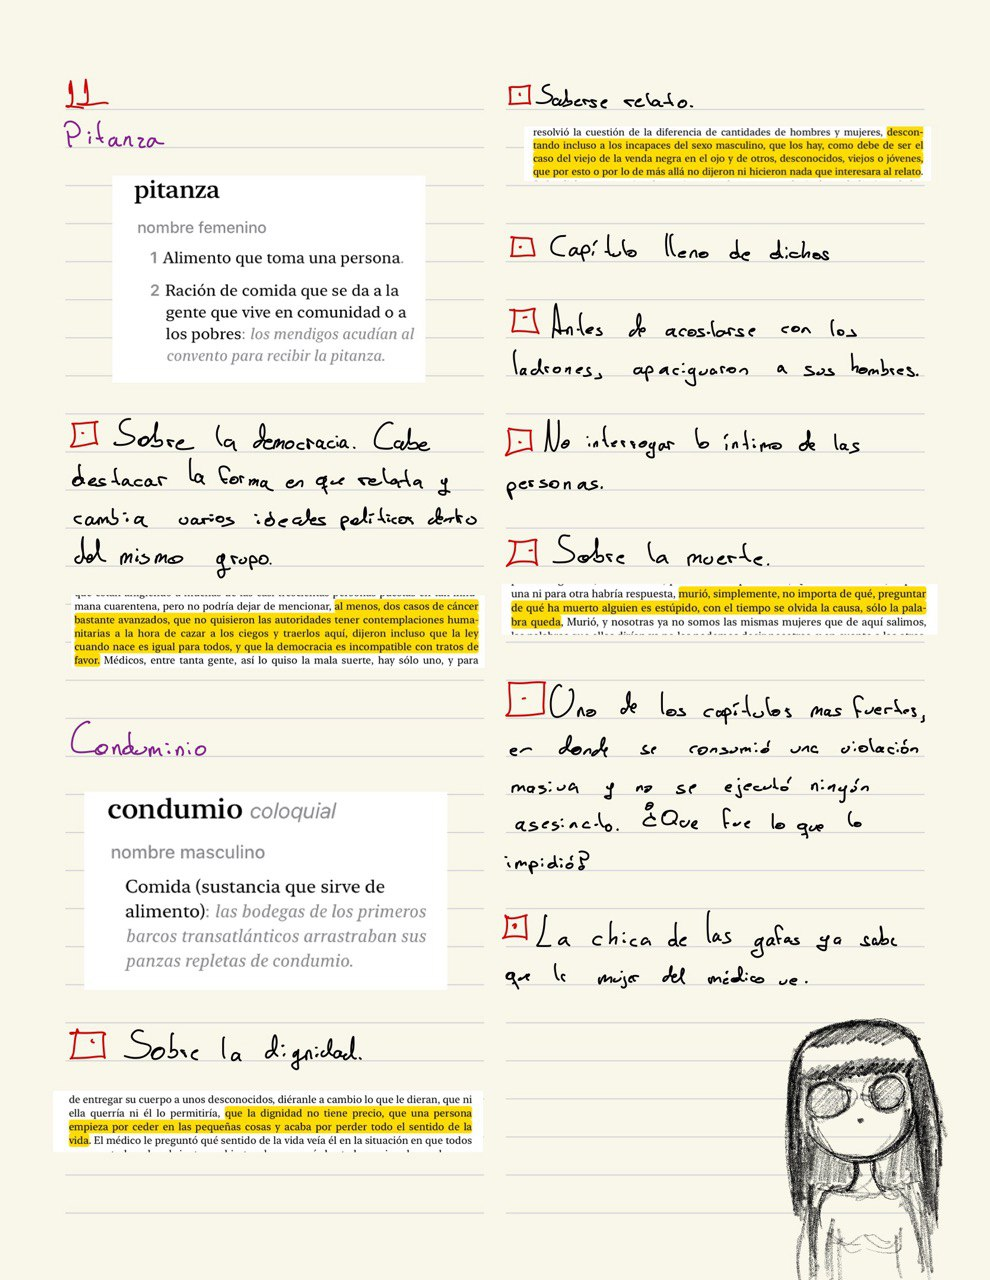 11
Pitanza
pitanza
nombre femenino
1 Alimento que toma una persona.
2 Ración de comida que se da a la
gente que vive en comunidad o a
los pobres: los mendigos acudían al
convento para recibir la pitanza.
Sobre la democracia. Cabe
destacar la forma en que relata y
cambia varios ideales políticos dentro
del mismo grupo.
mana cuarentena, pero no podría dejar de mencionar, al menos, dos casos de cáncer
bastante avanzados, que no quisieron las autoridades tener contemplaciones huma-
nitarias a la hora de cazar a los ciegos y traerlos aquí, dijeron incluso que la ley
cuando nace es igual para todos, y que la democracia es incompatible con tratos de
favor. Médicos, entre tanta gente, así lo quiso la mala suerte, hay sólo uno, y para
Conduminio
condumio coloquial
nombre masculino
Comida (sustancia que sirve de
alimento): las bodegas de los primeros
barcos transatlánticos arrastraban sus
panzas repletas de condumio.
Sobre la dignidad.
de entregar su cuerpo a unos desconocidos, diéranle a cambio lo que le dieran, que ni
ella querría ni él lo permitiría, que la dignidad no tiene precio, que una persona
empieza por ceder en las pequeñas cosas y acaba por perder todo el sentido de la
vida. El médico le preguntó qué sentido de la vida veía él en la situación en que todos
Saberse relato.
resolvió la cuestión de la diferencia de cantidades de hombres y mujeres, descon-
tando incluso a los incapaces del sexo masculino, que los hay, como debe de ser el
caso del viejo de la venda negra en el ojo y de otros, desconocidos, viejos o jóvenes,
que por esto o por lo de más allá no dijeron ni hicieron nada que interesara al relato.
Capítulo lleno de dichos
Antes de acostarse con los
ladrones, apaciguaron a sus hombres.
No interrogar lo íntimo de las
personas.
Sobre la muerte.
una ni para otra habría respuesta, murió, simplemente, no importa de qué, preguntar
de qué ha muerto alguien es estúpido, con el tiempo se olvida la causa, sólo la pala-
bra queda, Murió, y nosotras ya no somos las mismas mujeres que de aquí salimos,
Uno de los capítulos mas fuertes,
en donde se consumió una violación
masiva y no se ejecutó ningún
asesinato. ¿Que fue lo que lo
impidió?
La chica de las gafas ya sabe
que la mujer del médico ve.